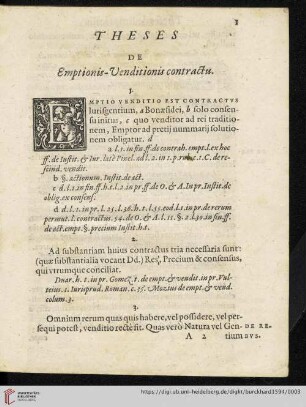 1
THESES
DE
Emptionis-Venditionis contractu.
1.
EMPTIO VENDITIO EST CONTRACTVS
Iurisgentium, a Bonæfidei, b solo consen-
su initus, c quo venditor ad rei traditio-
nem, Emptor ad pretij nummarij solutio-
nem obligatur. d
a l. 1. in fin. ff. de contrah. empt. l. ex hoc
ff. de Iustit. & Iur. late Pinel. ad l. 2. in 1. p. C. de re-
scind. vendit.
b §. actionum. Instit. de act.
c d. l. 1. in fin. ff. h. t. l. 2. in pr. ff. de O. & A. In pr. Instit. de
oblig. ex consens.
d d. l. 1. in pr. l. 25. l. 28. h. t. l. 35. cod. l. 1. in pr. de rerum
permut. l. contractus. 54. de O. & A. l. 11. §. 2. l. 30. in fin. ff.
de act. empt. §. precium Instit. h. t.
2.
Ad substantiam huius contractus tria necessaria sunt:
(quæ substantialia vocant Dd.) Res, Precium & consensus,
qui vtrumque conciliat.
Duar. h. t. in pr. Gomez. t. de empt. & vendit. in pr. Vul-
teius. 1. Iurisprud. Roman. c. 35. Mozius de empt. & vend.
colum. 3.
3.
Omnium rerum quas quis habere, vel possidere, vel per-
sequi potest, venditio recte fit. Quas vero Natura vel Gen- DE RE-
A 2 tium BVS.
https://digi.ub.uni-heidelberg.de/diglit/burckhard1594/0003